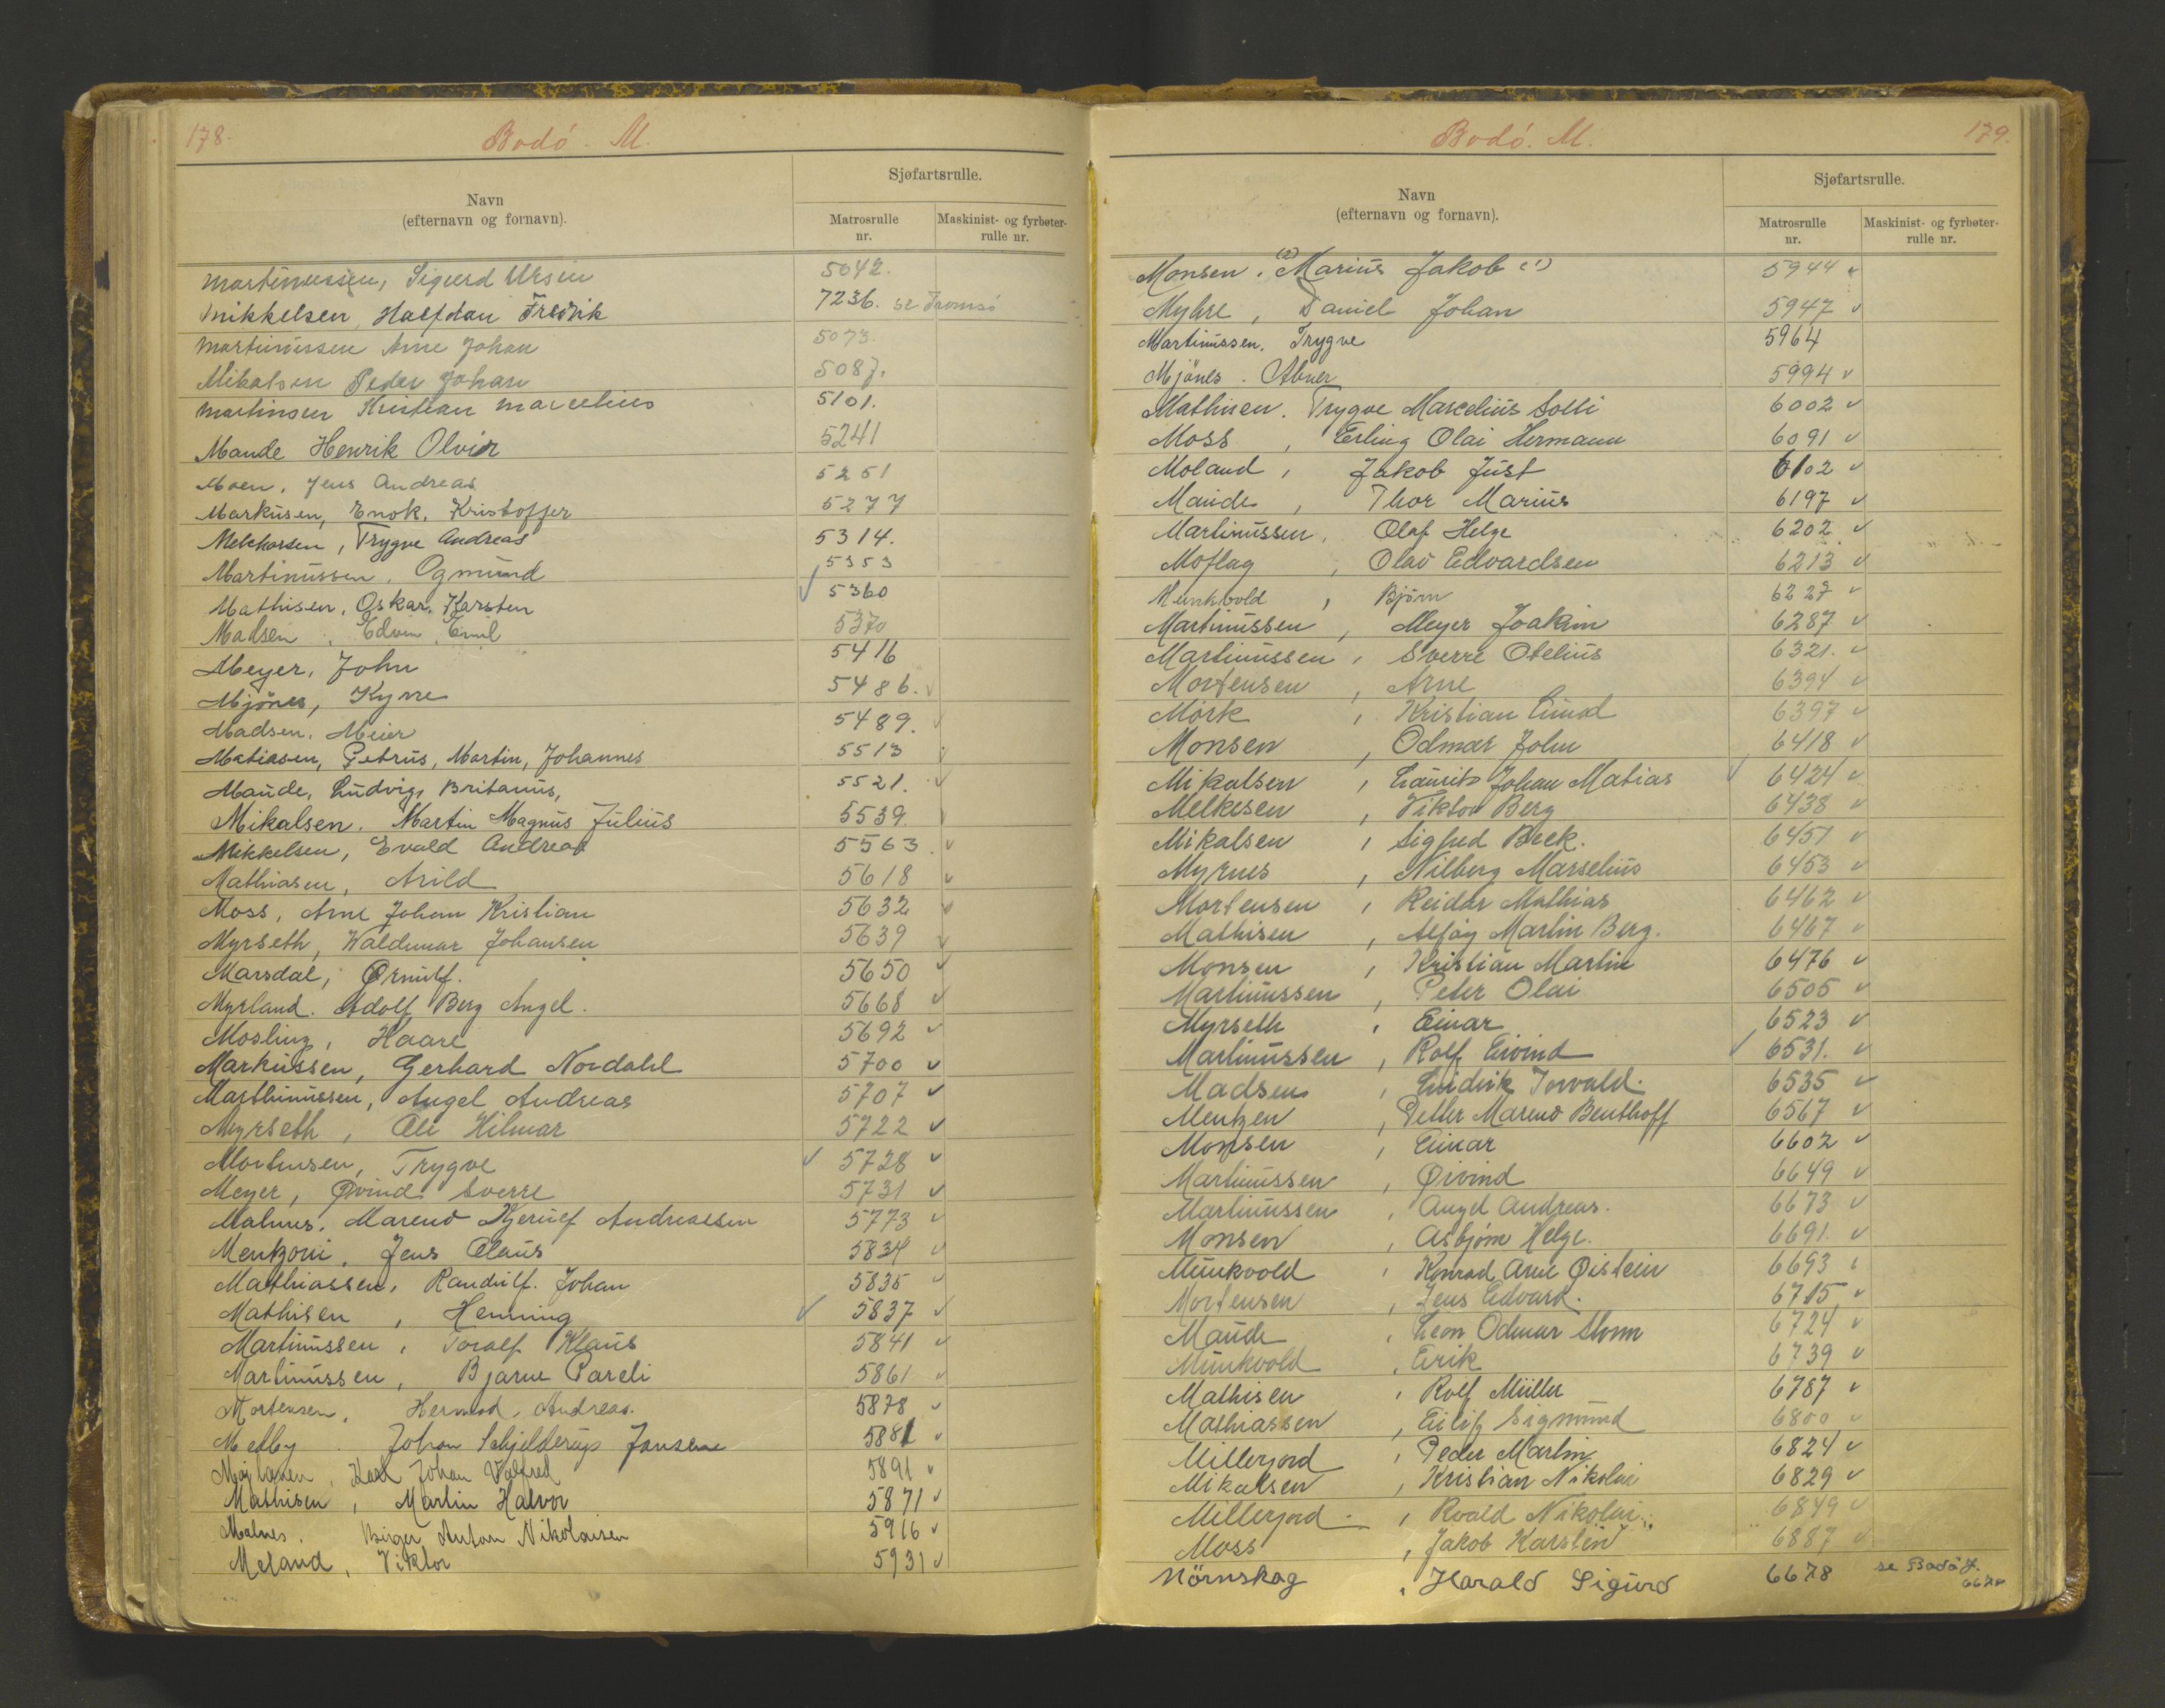 178.
Bodó. M.
Navn
(efternavn og fornavn).
Sjøfartsrulle.
Matrosrulle
nr.
Maskinist- og fyrbøter-
rulle nr.
Martinussen, Sigurd Ursin 5042.
Mikkelsen, Halfdan Fredrik 7236. se Tromsö
Martinussen Arne Johan 5073.
Mikalsen Peder Johan 5087.
Martinsen Kristian Marcelius 5101.
Maude Henrik Olvir 5241
Moen, Jens Andreas 5251
Markusen, Enok, Kristoffer 5277
Melchorsen, Trygve Andreas 5314.
Martinussen, Ogmund 5353
Mathisen, Oskar, Karsten √ 5360
Madsen, Edvin, Emil 5370
Meyer, John 5416
Mjönes, Kyrre 5486. v
Madsen, Meier 5489. v
Matiasen, Petrus, Martin, Johannes 5513
Maude, Ludvig, Britanus, 5521. v
Mikalsen. Martin Magnus Julius 5539
Mikkelsen, Evald Andreas 5563. v
Mathiasen, Arild 5618 v
Moss, Arne Johan Kristian 5632 v
Myrseth, Waldemar Johansen 5639 v
Marsdal, Ørnulf. 5650 v
Myrland. Adolf Berg Angel. 5668 v
Mosling, Haare 5692 v
Markussen, Gerhard Nordahl 5700 v
Marthinussen, Angel Andreas 5707 v
Myrseth, Ole Hilmar 5722 v
Mortensen, Trygve √ 5728 v
Meyer, Øvind Sverre 5731 v
Malnes, Mareno Andreassen 5773 v
Mentzoni, Jens Claus 5834 v
Mathiassen, Randulf. Johan 5835 v
Mathisen, Henning √ 5837 v
Martinussen, Toralf Klaus 5841 v
Martinussen, Bjarne Pareli 5861 v
Mortensen, Hermod, Andreas. 5878 v
Medby. Johan Schjelderup Jansen 5881 v
Karl Johan Valfred 5891 v
Mathisen, Martin Halvor 5871 v
Malnes. Birger Anton Nikolaisen 5916 v
Meland, Viktor 5931 v
Bodó. M.
179.
Navn
(efternavn og fornavn).
Sjøfartsrulle.
Matrosrulle
nr.
Maskinist- og fyrbøter-
rulle nr.
Monsen, (2) Marius Jakob (1) 5944 v
Myhre, Daniel Johan 5947 v
Martinussen, Trygve 5964
Mjönes. Abner 5994 v
Mathisen. Trygve Marcelius Solli 6002 v
Moss, Erling Olai Hermann 6091 v
Moland, Jakob Just 6102 v
Maude, Thor Marius 6197 v
Martinussen, Olaf Helge 6202 v
Moflag, Olav Edvardsen 6213 v
Munkvold, Björn 6227 v
Martinussen, Meyer Joakim 6287 v
Martinussen, Sverre Otelius 6321. v
Mortensen, Arne 6394 v
Mörk, Kristian Einod 6397 v
Monsen, Odmar John 6418 v
Mikalsen, Laurits Johan Matias √ 6424 v
Melkesen, Viktor Berg 6438 v
Mikalsen, Sigfred Beck. 6451 v
Myrnes, Nilberg Marselius 6453 v
Mortensen, Reidar Mathias 6462 v
Mathisen, Martin Berg. 6467 v
Monsen, Kristian Martin 6476 v
Martinussen, Peter Olai 6505 v
Myrseth, Einar 6523 v
Martinussen, Rolf Eivind √ 6531. v
Madsen, Torvald. 6535 v
Mentzen, Petter Mareno Benthoff 6567 v
Monsen, Einar 6602 v
Martinussen, Øivind 6649 v
Martinussen, Angel Andreas. 6673 v
Monsen, Asbjørn Helge. 6691. v
Munkvold, Konrad Arne Øistein 6693 v
Mortensen, Jens Edvard. 6715 v
Maude, Leon Odmar Storm 6724 v
Munkvold, Erik 6739 v
Mathisen, Rolf Müller 6787 v
Mathiassen, Eilif Sigmund 6800 v
Millerjord, Peder Martin 6824 v
Mikalsen, Kristian Nikolai 6829 v
Millerjord, Roald Nikolai 6849 v
Moss, Jakob Karstein 6887 v
Mörnskag, Harald Sigurd 6678 se Bodö J. 6678